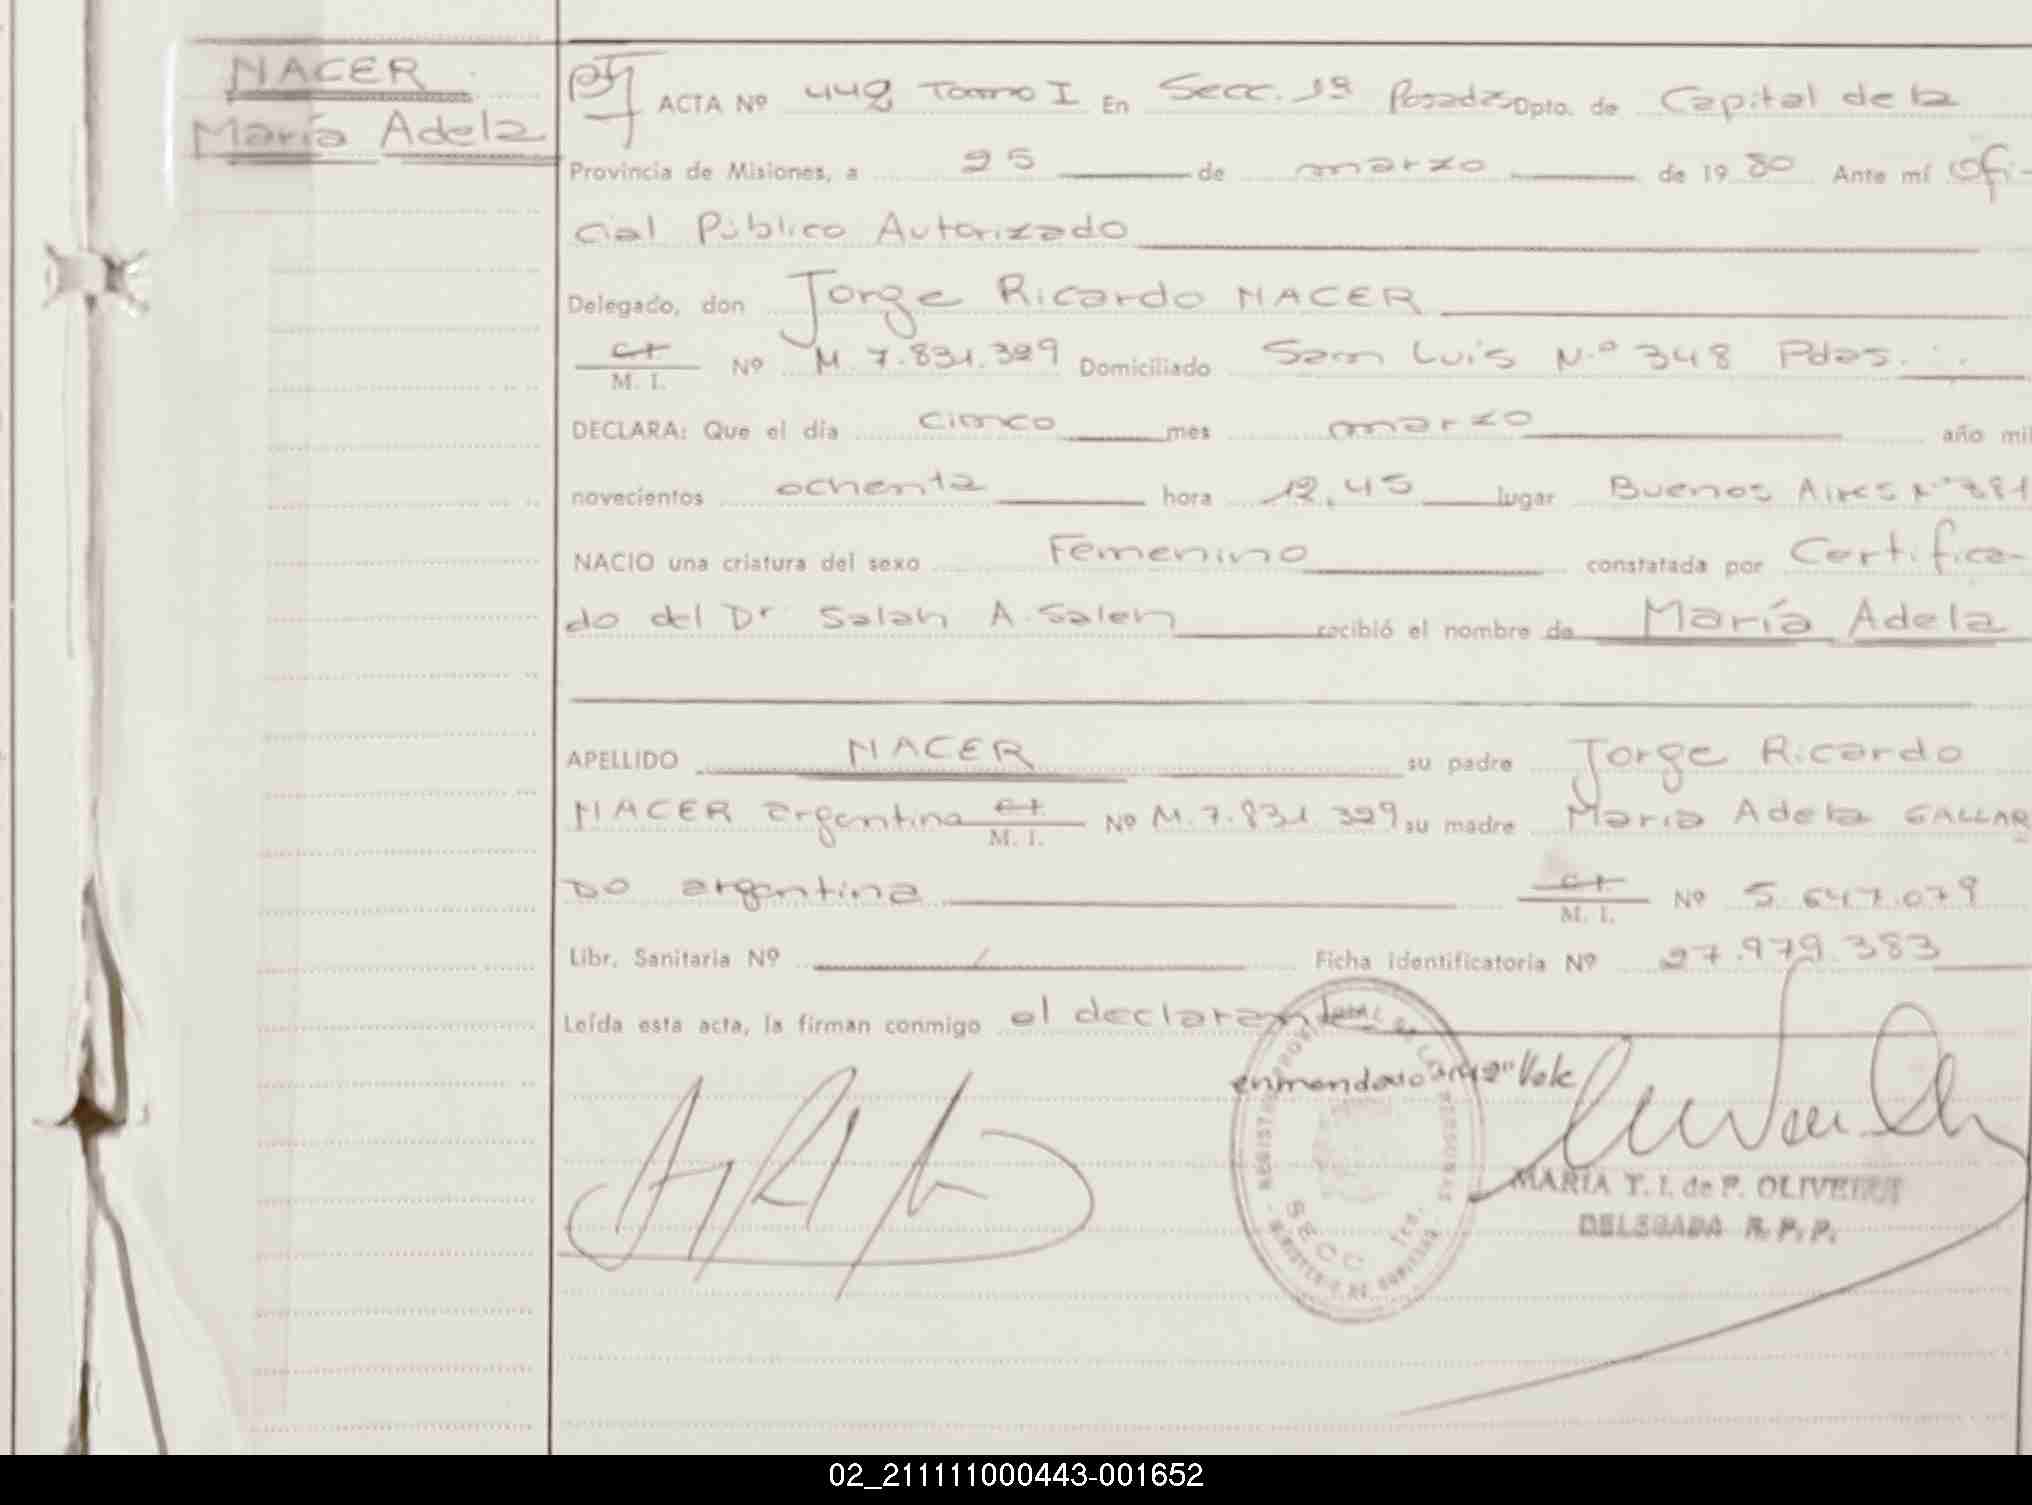 NACER
María Adela
ACTA Nº 442 Tomo I En Secc. 1ª Posadas Dpto. de Capital de la
Provincia de Misiones, a 25 de marzo de 1980 Ante mí Ofi-
cial Público Autorizado
Delegado, don Jorge Ricardo NACER
C.I. M. I. Nº M. 7.831.329 Domiciliado San Luis N.º 348 Pdas.
DECLARA: Que el día cinco mes marzo año mil
novecientos ochenta hora 12,45 lugar Buenos Aires Nº
NACIO una criatura del sexo Femenino constatada por Certifica-
do del Dr Salah A. Saleh recibió el nombre de María Adela
APELLIDO NACER su padre Jorge Ricardo
NACER argentino C.I. M. I. Nº M. 7.831.329 su madre María Adela GALLAR
DO argentina C.I. M. I. Nº 5.647.079
Libr. Sanitaria Nº / Ficha identificatoria Nº 27.979.383
Leída esta acta, la firman conmigo el declarante
enmendado Vale
SECC 1ra.
MARIA T. I. de P. OLIVEIRA
DELEGADA R. P. P.
02_211111000443-001652